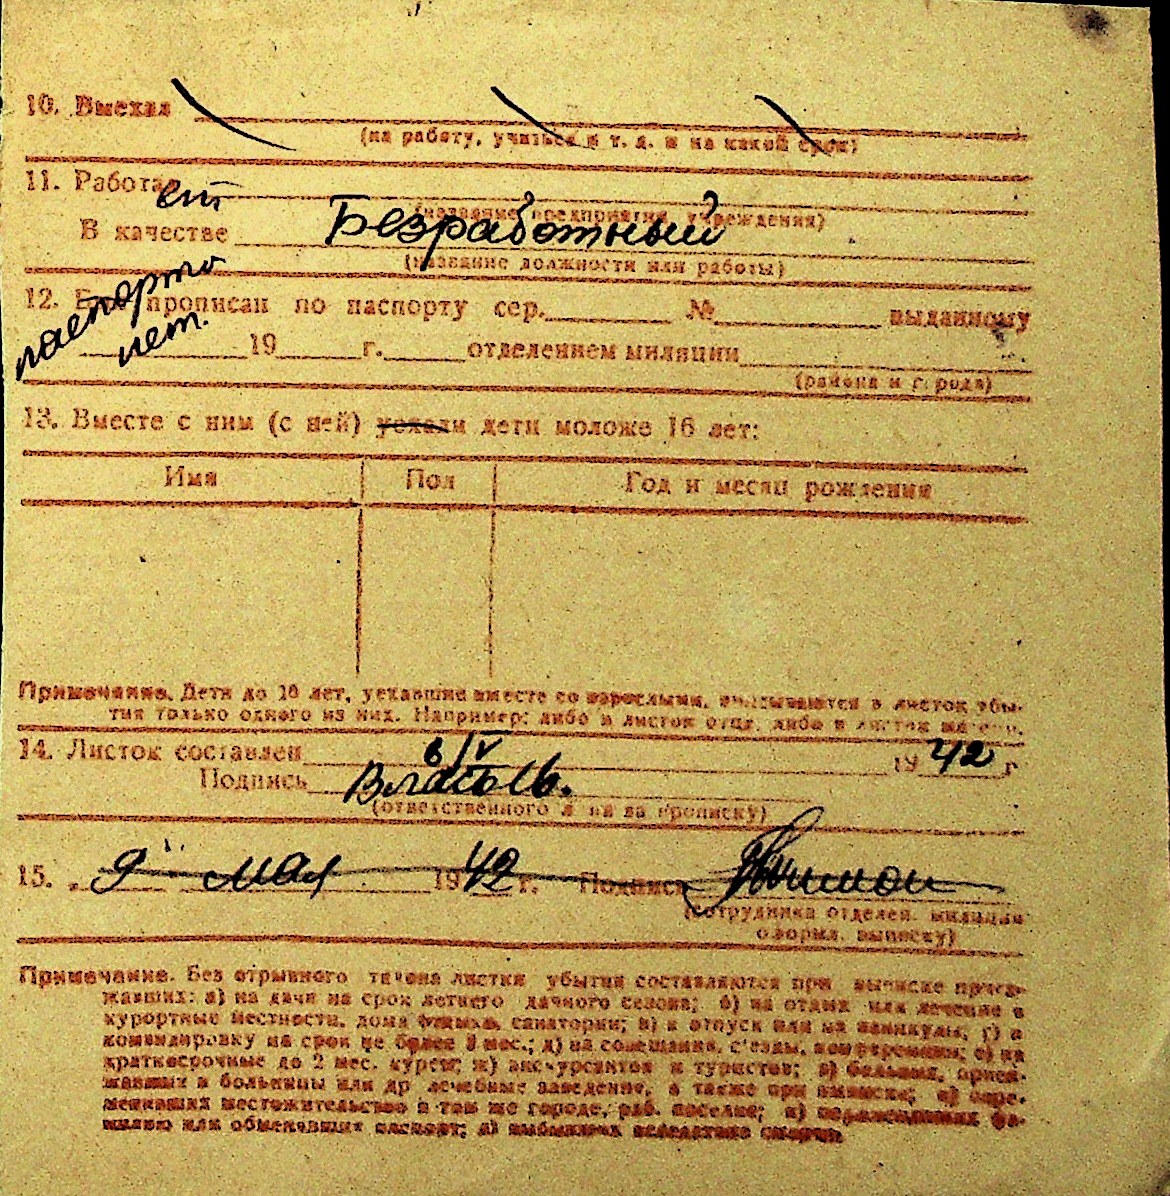 10. Выехал
(на работу, учиться и т. д. и на какой срок)
11. Работает
(название предприятия, учреждения)
В качестве Безработный
(название должности или работы)
12. Был прописан по паспорту сер. № выданному
паспорта нет.
19 г. отделением милиции
(района и города)
13. Вместе с ним (с ней) уехали дети моложе 16 лет:
Имя Пол Год и месяц рождения
Примечание. Дети до 16 лет, уехавшие вместе со взрослыми, вписываются в листок убы-
тия только одного из них. Например: либо в листок отца, либо в листок матери.
14. Листок составлен 6/V 1942 г
Подпись
(ответственного л на за прописку)
15. „ 9" мая 1942 г. Подпись
(сотрудника отделен. милиции
оформл. выписку)
Примечание. Без отрывного талона листки убытия составляются при выписке приез-
жавших: а) на дачи на срок летнего дачного сезона; б) на отдых или лечение в
курортные местности, дома отдыха, санатории; в) в отпуск или на каникулы; г) в
командировку на срок не более 3 мес.; д) на совещания, с'езды, конференции; е) на
краткосрочные до 2 мес. курсы; ж) экскурсантов и туристов; з) больных, приез-
жавших в больницы или др лечебные заведение, а также при выписке; и) пере-
менивших местожительство в том же городе, раб. поселке; к) переменивших фа-
милию или обменявших паспорт; л) выбывших вследствие смерти.